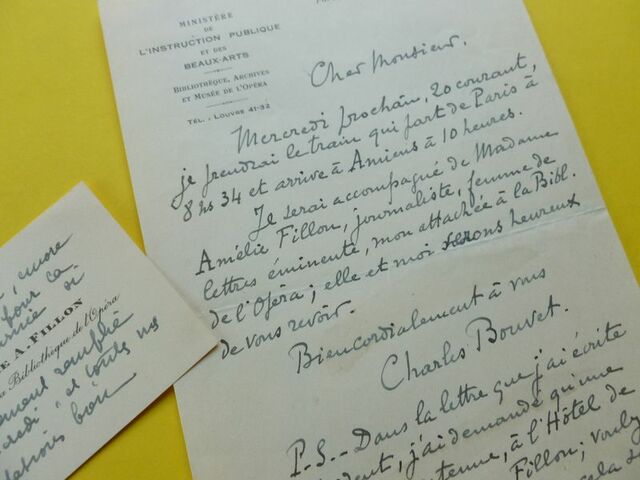 MINISTÈRE
DE
L'INSTRUCTION PUBLIQUE
ET DES
BEAUX-ARTS
BIBLIOTHÈQUE, ARCHIVES
ET MUSÉE DE L'OPÉRA
TÉL. LOUVRE 41-32
Cher Monsieur.
Mercredi prochain, 20 courant,
je prendrai le train qui part de Paris à
8 hs 34 et arrive à Amiens à 10 heures.
Je serai accompagné de Madame
Amélie Fillon, journaliste, femme de
lettres éminente, mon attachée à la Bibl.
de l'Opéra; elle et moi serons heureux
de vous revoir.
Bien cordialement à vous
Charles Bouvet.
P.S. - Dans la lettre que j'ai écrite
j'ai demandé qu'une
à l'Hôtel de
Fillon;
encore
pour ce
si
E A. FILLON
Bibliothèque de l'Opéra
et toutes